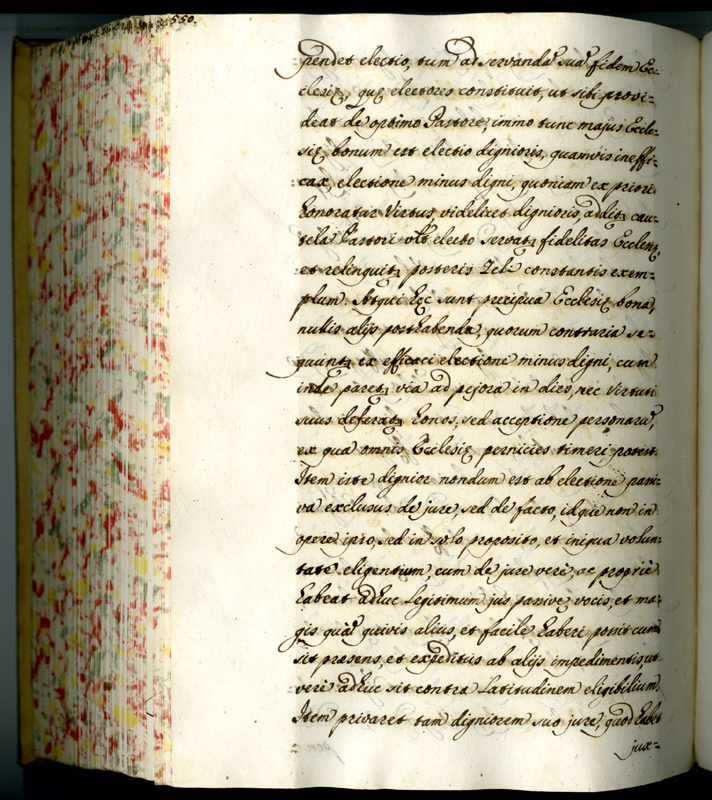 550.
pendet electio, tum ad servandã suã fidem Ec=
clesię, quę electores constituit, ut sibi provi=
deat de optimo Pastore, immo tunc majus Eccle=
się bonum est electio dignioris, quamvis ineffi=
cax, electione minus digni, quoniam ex priori
honoratur Virtus, videlicet dignioris, additr cau=
tela Pastori electo servatr fidelitas Ecclesię,
et relinquitr posteris Zeli constantis exem=
plum. Atqui hęc sunt precipua Ecclesię bona,
nullis alijs posthabenda, quorum contraria se=
quuntr ex efficaci electione minus digni, cum
inde paretr via ad pejora in dies, nec Virtuti
suus deferatr honos, sed acceptione personarũ,
ex qua omnis Ecclesię pernicies timeri potest.
Item iste dignior nondum est ab electione passi=
va exclusus de jure, sed de facto, idque non in
opere ipso, sed in solo proposito, et iniqua volun=
tate eligentium, cum de jure verè, ac propriè
habeat adhuc legitimum jus passivę vocis, et ma=
gis quã quivis alius, et facile haberi possit cum
sit præsens, et expeditus ab alijs impedimentis, ut
verè adhuc sit contra Latitudinem eligibilium.
Item privaret tam digniorem suo jure, quod habet
jux=